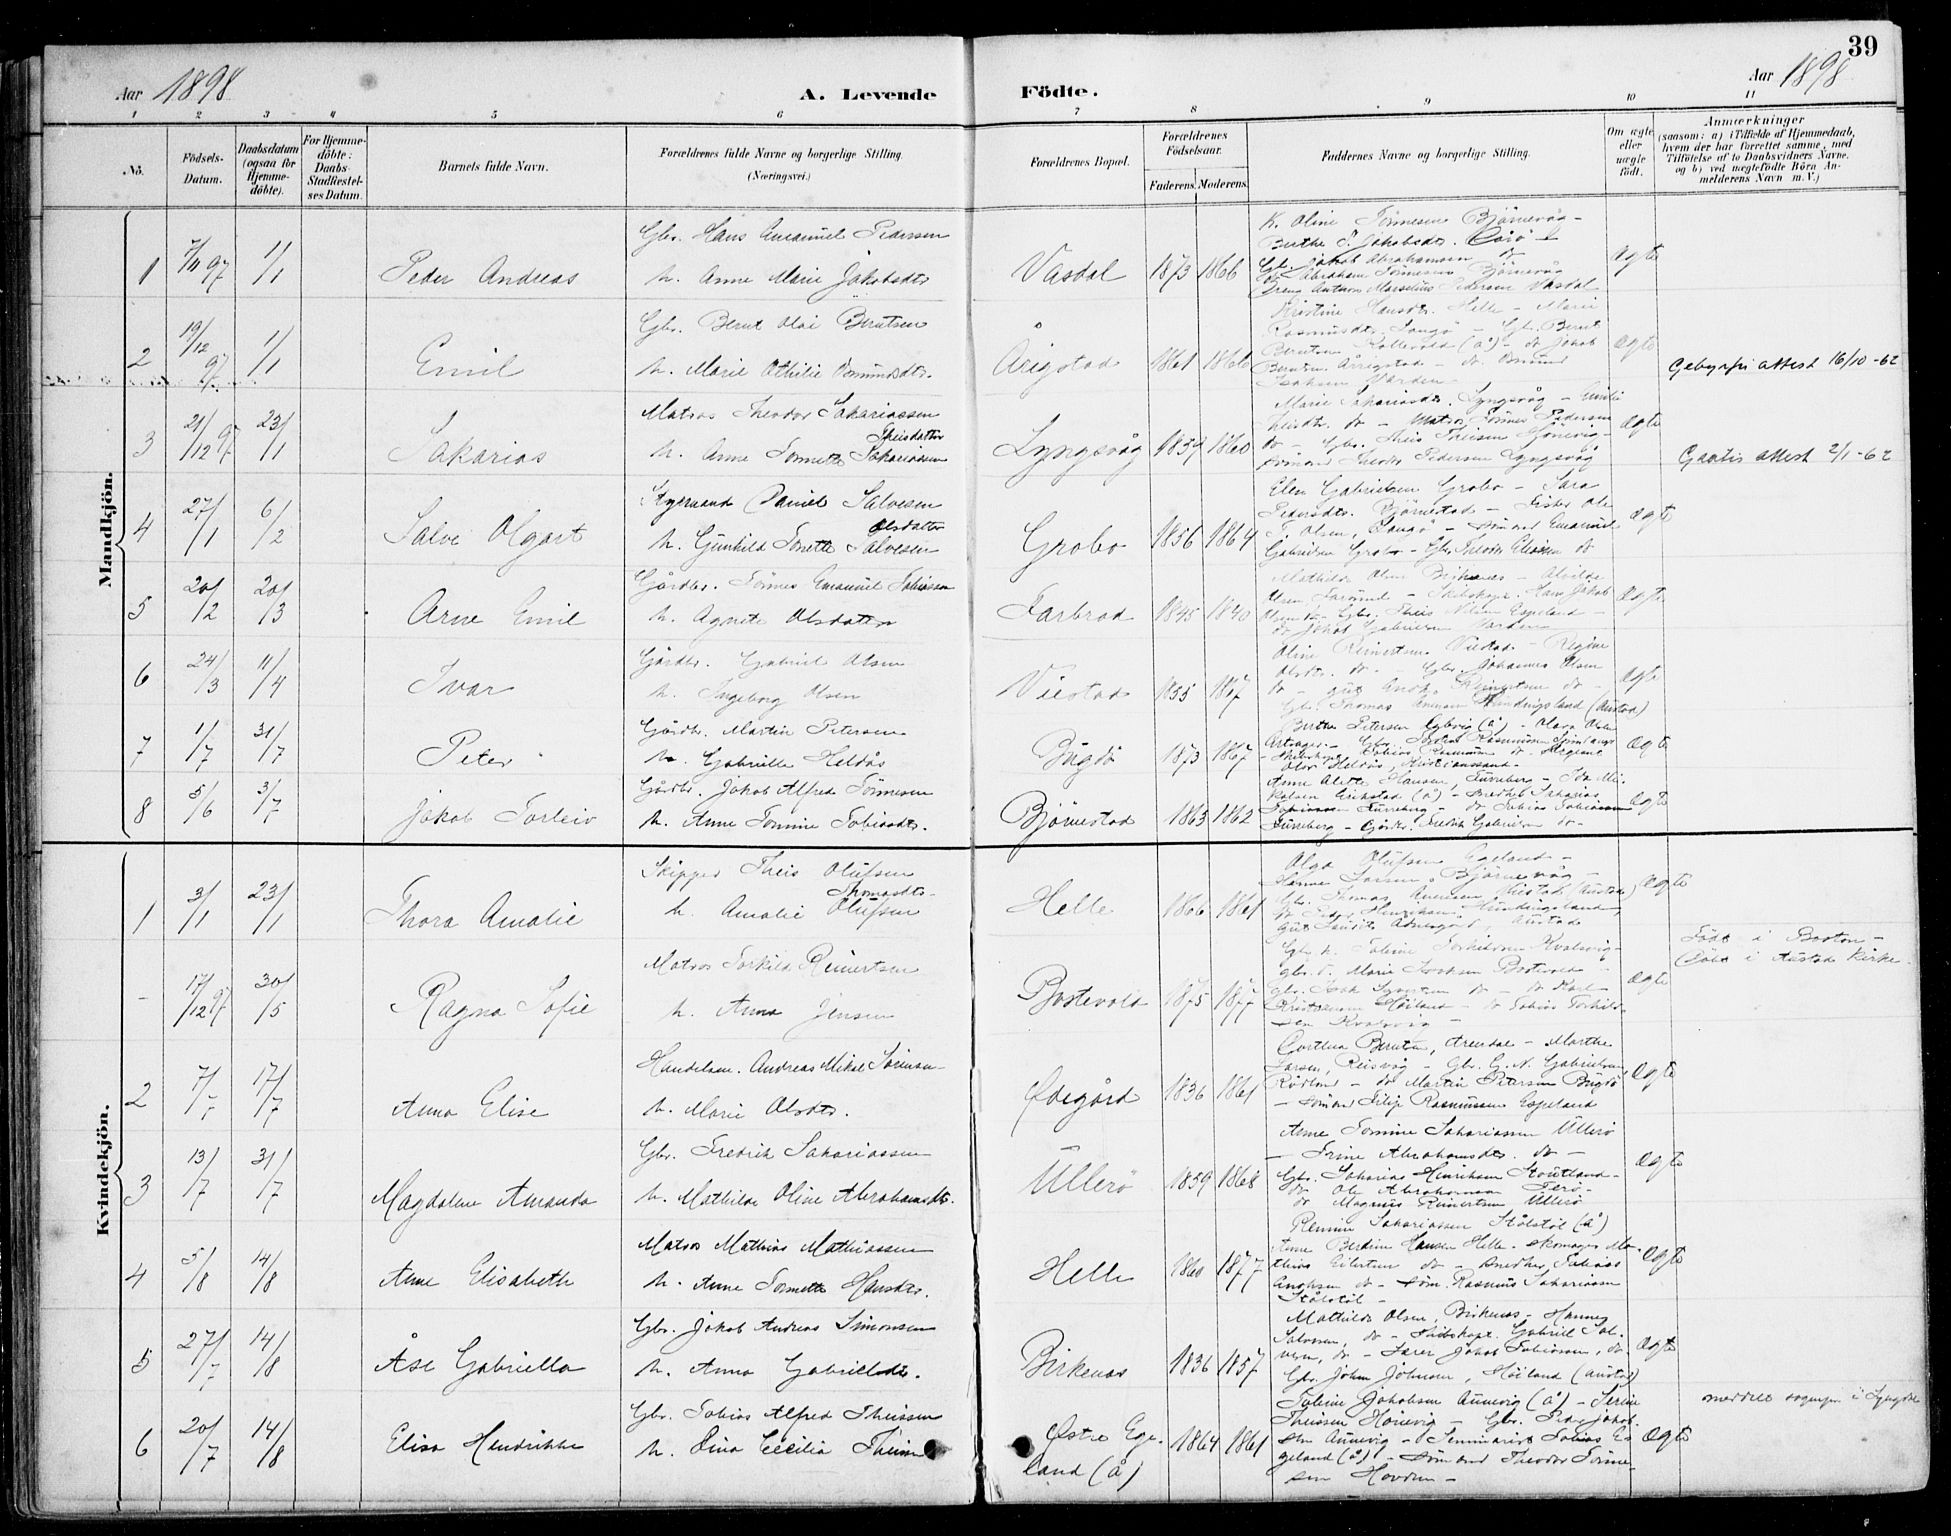 39
Aar 1898
A. Levende Födte.
Aar 1898.
1 2 3 4 5 6 7 8 9 10 11
No.
Födsels-Datum.
Daabsdatum (ogsaa for Hjemme-döbte).
For Hjemme-döbte: Daabs-Stadfæstel-ses Datum.
Barnets fulde Navn.
Forældrenes fulde Navne og borgerlige Stilling. (Næringsvei.)
Forældrenes Bopæl.
Forældrenes Födselsaar.
Faderens. Moderens.
Faddernes Navne og borgerlige Stilling.
Om ægte eller uægte födt.
Anmærkninger
(saasom: a) i Tilfælde af Hjemmedaab,
hvem der har forrettet samme, med
Tilföielse af to Daabsvidners Navne.
og b) ved uægtefödte Börn An-
melderens Navn m. V.)
Mandkjön.
1 7/11 97 1/1 Peder Andreas
Gbr. Hans Emanuel Pedersen
h. Anne Marie Jakobsdtr
Vasdal 1873 1866
K. Oline Tönnesen Björnevåg -
Berthe T. Jakobsdtr.
Gbr. Jakob Abrahamsen do
Abraham Tönnesen Björnevåg
Marselius Pedersen Vasdal
Ægte
2 19/12 97 1/1 Emil
Gbr. Bernt Olai Berntsen
h. Marie Othilie Osmundsdtr.
Årigstad 1861 1866
Kristine Hansdtr. Helle - Marie
Rasmusdtr. Langö - Gbr. Bernt
Berntsen (Å) - do Jakob
Berntsen Årigstad - do Osmund
Isaksen Varden
Ægte
Gebyrfri attest 16/10-62
3 21/12 97 23/1 Sakarias
Matros Theodor Sakariassen
h. Anne Tonnette Sakariassen Theisdatter
Lyngsvåg 1859 1860
Marie Sakariasdtr. Lyngsvåg - Emilie
Theisdtr. do - Matros Tönnes Pedersen
do - Gbr. Theis Theisen Hönevig -
Sömand Theodor Pedersen Lyngsvåg
Ægte
Gratis attest 2/1-62
4 27/1 6/2 Salve Olgart
Styrmand Daniel Salvesen
h. Gunhild Tonette Salvesen Olsdatter
Grobo 1856 1864
Elen Gabrielsen Grobo - Sara
Pedersdtr. Björnestad - Fisker Ole
T. Olsen, Langö - Sömand Emanuel
Gabrielsen Grobo - Gbr. Theodor Eliassen do
Ægte
5 20/2 20/3 Arne Emil
Gårdbr. Tönnes Emanuel Tobiassen
h. Agnete Olsdatter
Farbrod 1845 1840
Mathilde Olsen Birkenes - Alvilde
Olsen - Skibskapt. Hans Jakob
Olsen do - Gbr. Theis Nilsen Egeland -
do Jakob Gabrielsen Varden
Ægte
6 24/3 11/4 Ivar
Gårdbr. Gabriel Olsen
h. Ingeborg Olsen
Viestad 1855 1867
Oline Reinertsen Viestad - Regine
Olsdtr. do - Gbr. Johannes Olsen
do - gut Anders Reinertsen do -
Gbr. Thomas Hundingsland (Austad)
Ægte
7 1/7 31/7 Peter
Gårdbr. Martin Petersen
h. Gabrielle Heldås
Bugdö 1873 1867
Berthe Petersen (Å) - Olava Olsen
Gbr. Rasmussen
Skibskapt. Tobias Rasmussen do
Olav Heldås, Kristianssand
Ægte
8 5/6 3/7 Jakob Torleiv
Gårdbr. Jakob Alfred Tönnesen
h. Anne Tomine Tobiasdtr.
Björnestad 1863 1862
Anne Alette Hansen, Furreberg - Ida Mi-
kalsen Erikstad (Å) - Snedker Sakarias
Tobiassen Furreberg - do Tobias Tobiassen
Furreberg - Gårdbr. Fredrik Gabrielsen do -
Ægte
Kvindekjön.
1 3/1 23/1 Thora Amalie
Skipper Theis Olufsen
h. Amalie Olufsen Thomasdtr.
Helle 1866 1861
Olga Olufsen Egeland -
Hanne Larsen Björnevåg -
Gbr. Thomas Viestad (Austad)
do Peder Henriksen Hundingsland,
Gut Austad
Ægte
- 17/12 97 30/5 Ragna Sofie
Matros Torkild Reinertsen
h. Anna Jensen
Bostevold 1875 1877
Gbr. h. Tobine Torkildsen Kvalsvig -
Gbr. d. Marie Isaksen Bostevold -
Gbr. Isak Syvertsen do - do Karl
Kristensen Höiland - do Tobias Torkild-
sen Kvalsvig -
Ægte
Födt i Boston -
Döbt i Austad Kirke
2 7/7 17/7 Anna Elise
Handelsm. Andreas Mikal Sörensen
h. Marie Olsdtr.
Ødegård 1836 1861
Berntsen, Arendal - Marthe
Larsen, Reisvåg - Gbr. G. N. Gabrielsen,
Rödland - do Martin Petersen Bugdö
- Sömand Filip Rasmussen Egeland
Ægte
3 13/7 31/7 Magdalene Amanda
Gbr. Fredrik Sakariassen
h. Mathilde Oline Abrahamsdtr.
Ullerö 1859 1868
Anne Tomine Sakariassen Ullerö
- Trine Abrahamsdtr. do -
Gbr. Sakarias Henriksen Stoutland -
do Ole Abrahamsen
do Magnus Reinertsen Ullerö
Ægte
4 5/8 14/8 Anne Elisabeth
Matros Mathias Mathiassen
h. Anne Tonnette Hansdtr.
Helle 1860 1877
Remine Sakariassen Stålstöl (Å)
Anne Berdine Hansen Helle. Skomager Ma-
thias Eilertsen do - Snedker Tobias
do - Söm. Rasmus Sakariassen
Stålstöl -
Ægte
5 27/7 14/8 Åse Gabriella
Gbr. Jakob Andreas Simonsen
h. Anna Gabrielsdtr.
Birkenes 1836 1857
Mathilde Olsen, Birkenes - Hanne
Salvesen, do - Skibskapt. Gabriel Sal-
vesen, do - Jakob Tobiassen, do -
Gbr. Johan Johnsen, Höiland (Austad)
Ægte
6 20/7 14/8 Elisa Hendrikke
Gbr. Tobias Alfred Theissen
h. Lina Cecilia Theissen
Østre Ege-
land (Å) 1864 1861
Tobine Jakobsen Aunevig (Å) - Serine
Theissen Hönevig - Gbr. Peder Jakob-
sen Aunevig - Seminarist Tobias Eg-
geland (Å) - Sömand Theodor Tönne-
sen Hovden -
Ægte
meddelt sognepr. i Lyngdal